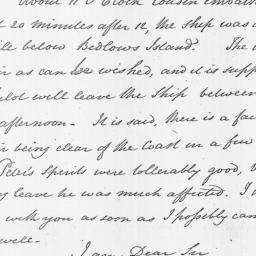 About 11 O Clock Cousin
20 minutes after 12, the Ship was
below Bedlows Island. The
as can be wished, and it is
will leave the Ship between
afternoon. It is said, there is a
being clear of the Coast in a few
Peter's Spirits were tollerably good,
leave he was much affected. I
wish you as soon as I possibly can
well.
I am, Dear Sir